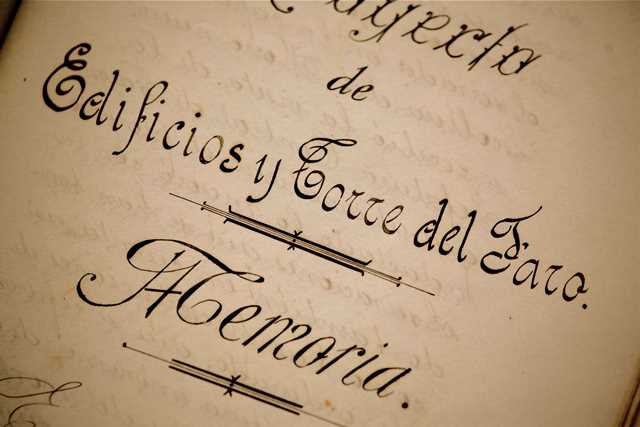 Proyecto
de
Edificios y Torre del Faro.
Memoria.